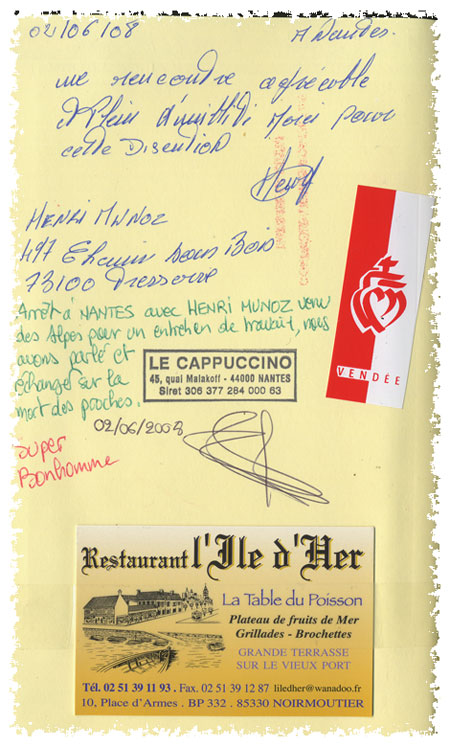 02/06/08
A Nantes.
une rencontre agréable
et Plein d'amitié Merci pour
cette Discution
HENRI MUNOZ
497 Chemin sous Bois
73100
Arrêt à NANTES avec HENRI MUNOZ venu
des Alpes pour un entretien de travail, nous
avons parlé et
échangé sur la
mort des proches.
LE CAPPUCCINO
45, quai Malakoff - 44000 NANTES
Siret 306 377 284 000 63
02/06/2008
Super
Bonhomme
VENDÉE
Restaurant l'Ile d'Her
La Table du Poisson
Plateau de fruits de Mer
Grillades - Brochettes
GRANDE TERRASSE
SUR LE VIEUX PORT
Tél. 02 51 39 11 93 . Fax. 02 51 39 12 87 liledher@wanadoo.fr
10, Place d'Armes . BP 332 . 85330 NOIRMOUTIER